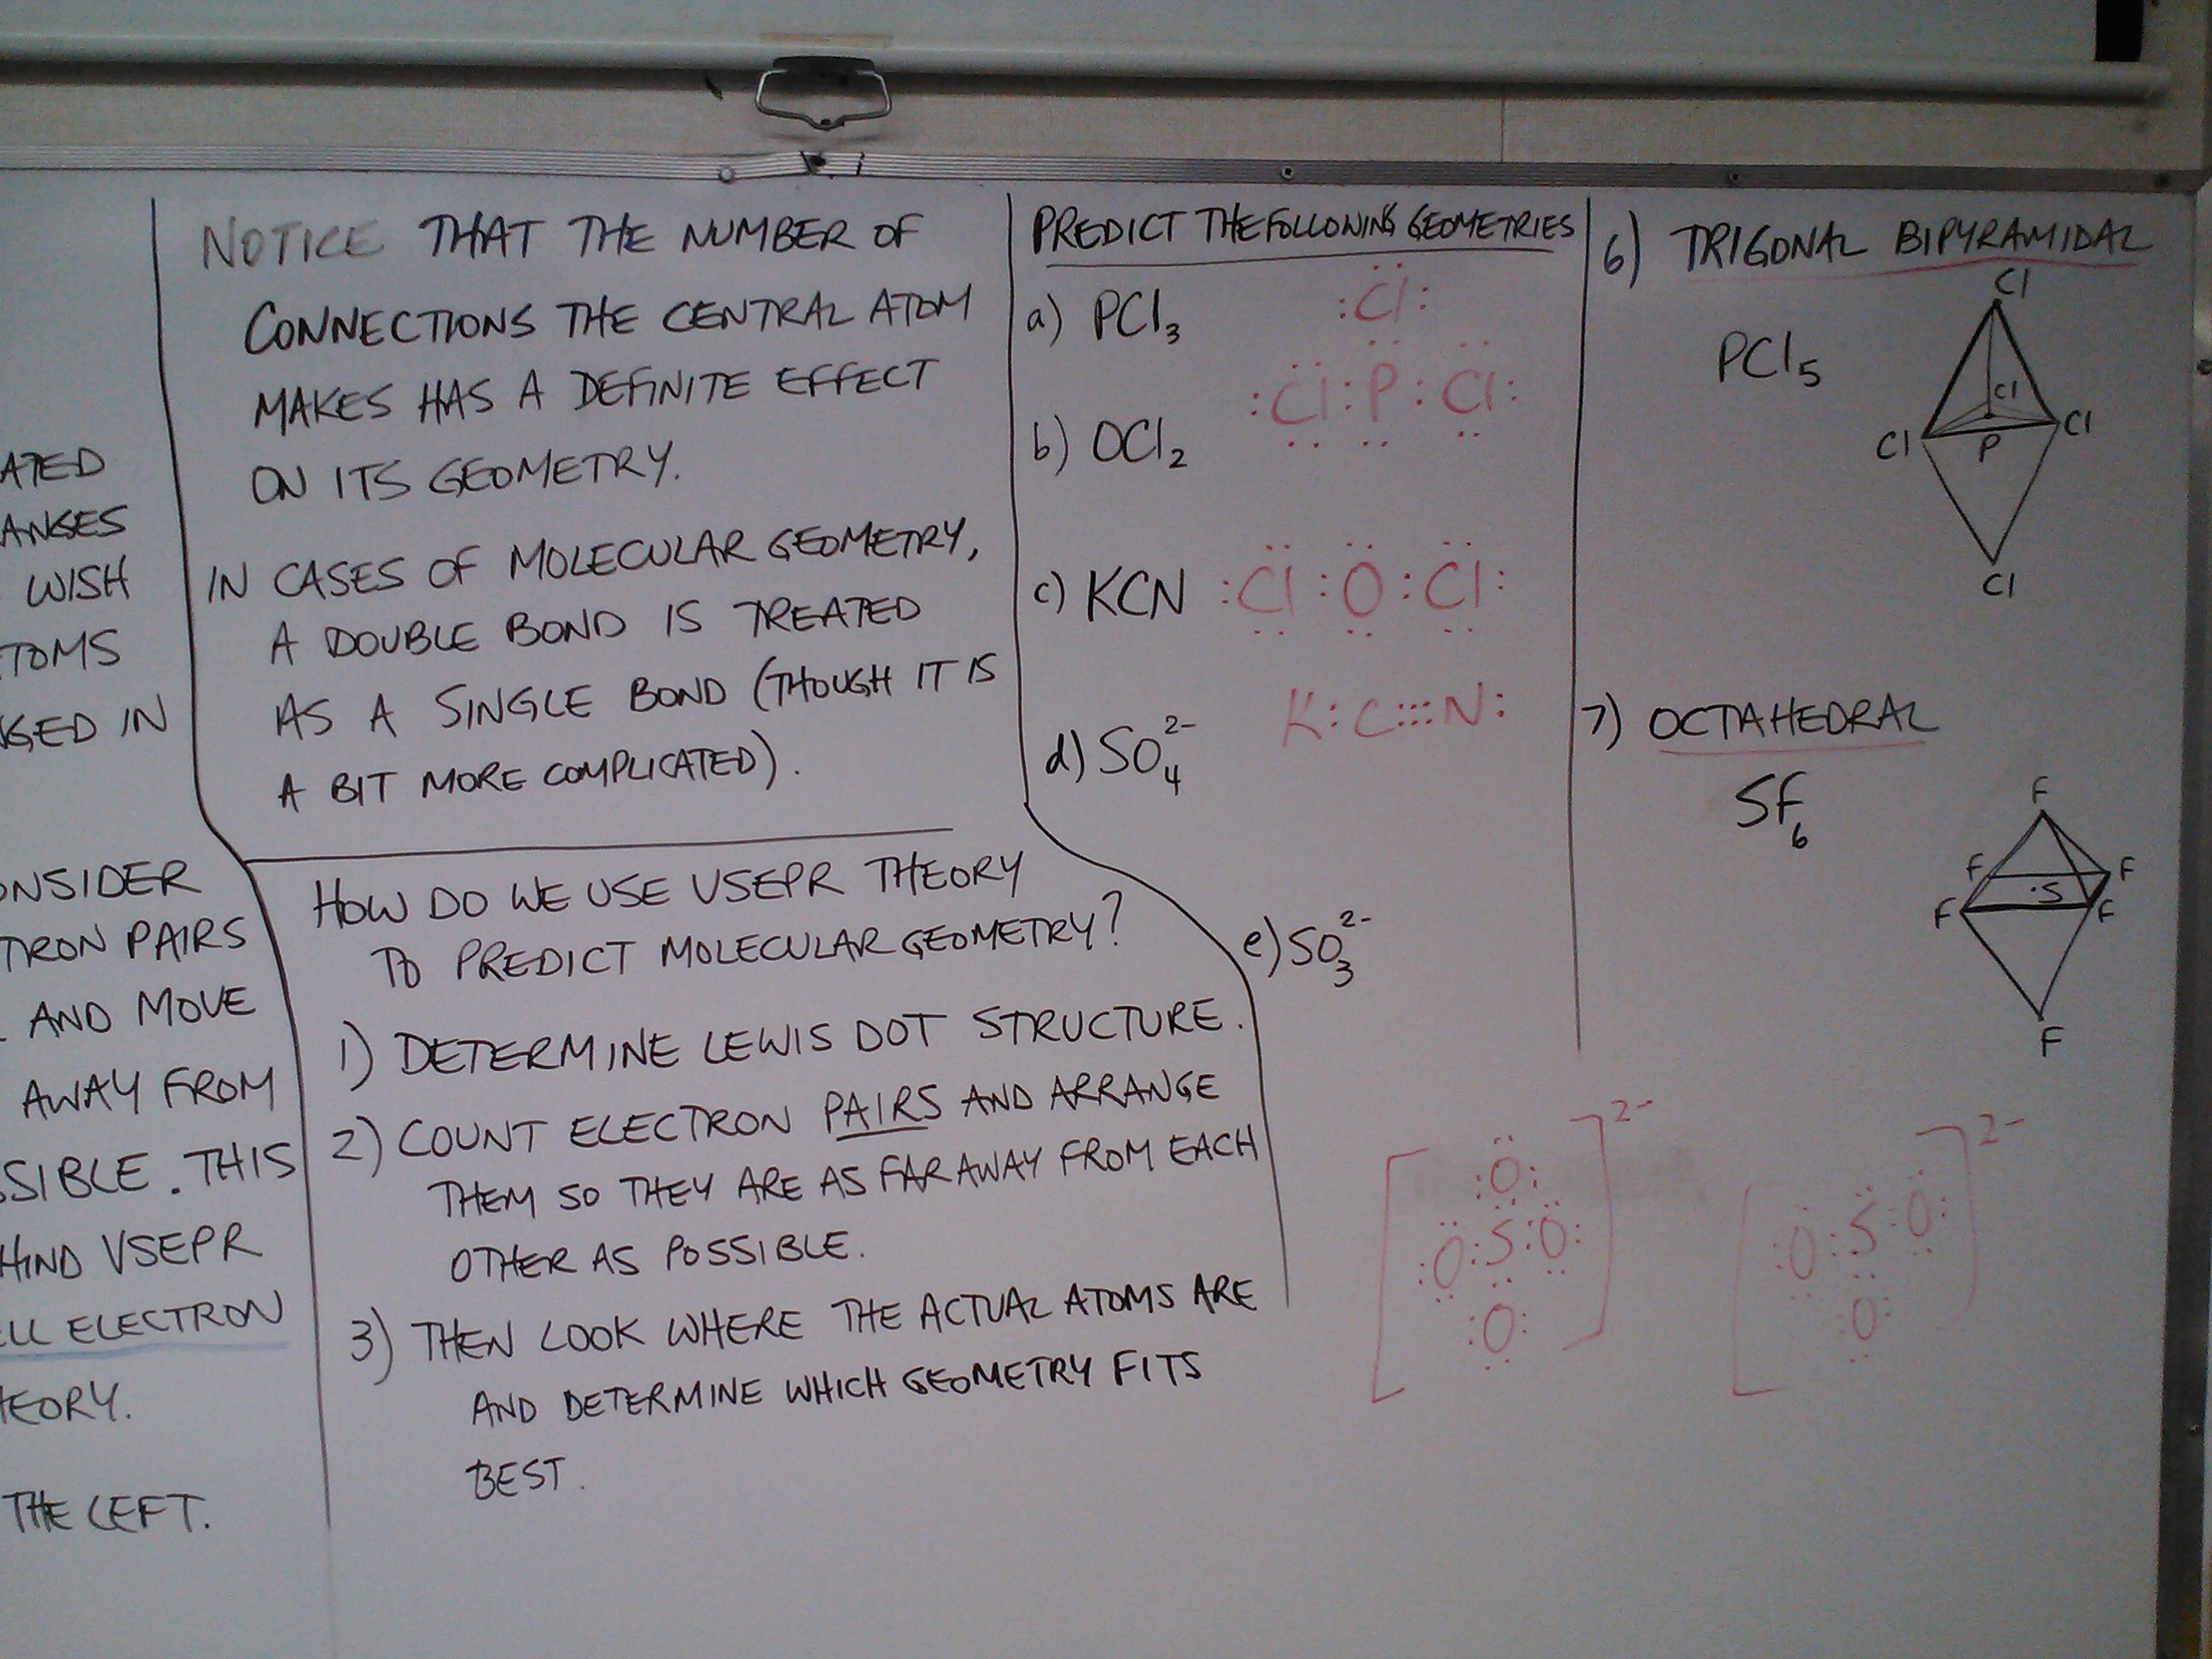 ATED
ANGES
WISH
TOMS
GED IN
ONSIDER
TRON PAIRS
AND MOVE
AWAY FROM
SSIBLE. THIS
HIND VSEPR
ELL ELECTRON
HEORY.
THE LEFT.
NOTICE THAT THE NUMBER OF
CONNECTIONS THE CENTRAL ATOM
MAKES HAS A DEFINITE EFFECT
ON ITS GEOMETRY.
IN CASES OF MOLECULAR GEOMETRY,
A DOUBLE BOND IS TREATED
AS A SINGLE BOND (THOUGH IT IS
A BIT MORE COMPLICATED).
HOW DO WE USE VSEPR THEORY
TO PREDICT MOLECULAR GEOMETRY?
1) DETERMINE LEWIS DOT STRUCTURE.
2) COUNT ELECTRON PAIRS AND ARRANGE
THEM SO THEY ARE AS FAR AWAY FROM EACH
OTHER AS POSSIBLE.
3) THEN LOOK WHERE THE ACTUAL ATOMS ARE
AND DETERMINE WHICH GEOMETRY FITS
BEST.
PREDICT THE FOLLOWING GEOMETRIES
a) PCl₃
:Cl:
:Cl:P:Cl:
b) OCl₂
c) KCN
:Cl:O:Cl:
K:C:::N:
d) SO₄²⁻
e) SO₃²⁻
6) TRIGONAL BIPYRAMIDAL
PCl₅
Cl
Cl
Cl
Cl
P
Cl
7) OCTAHEDRAL
SF₆
F
F
F
S
F
F
F
2-
:O:
:O:S:O:
:O:
2-
:O:S:O:
:O: